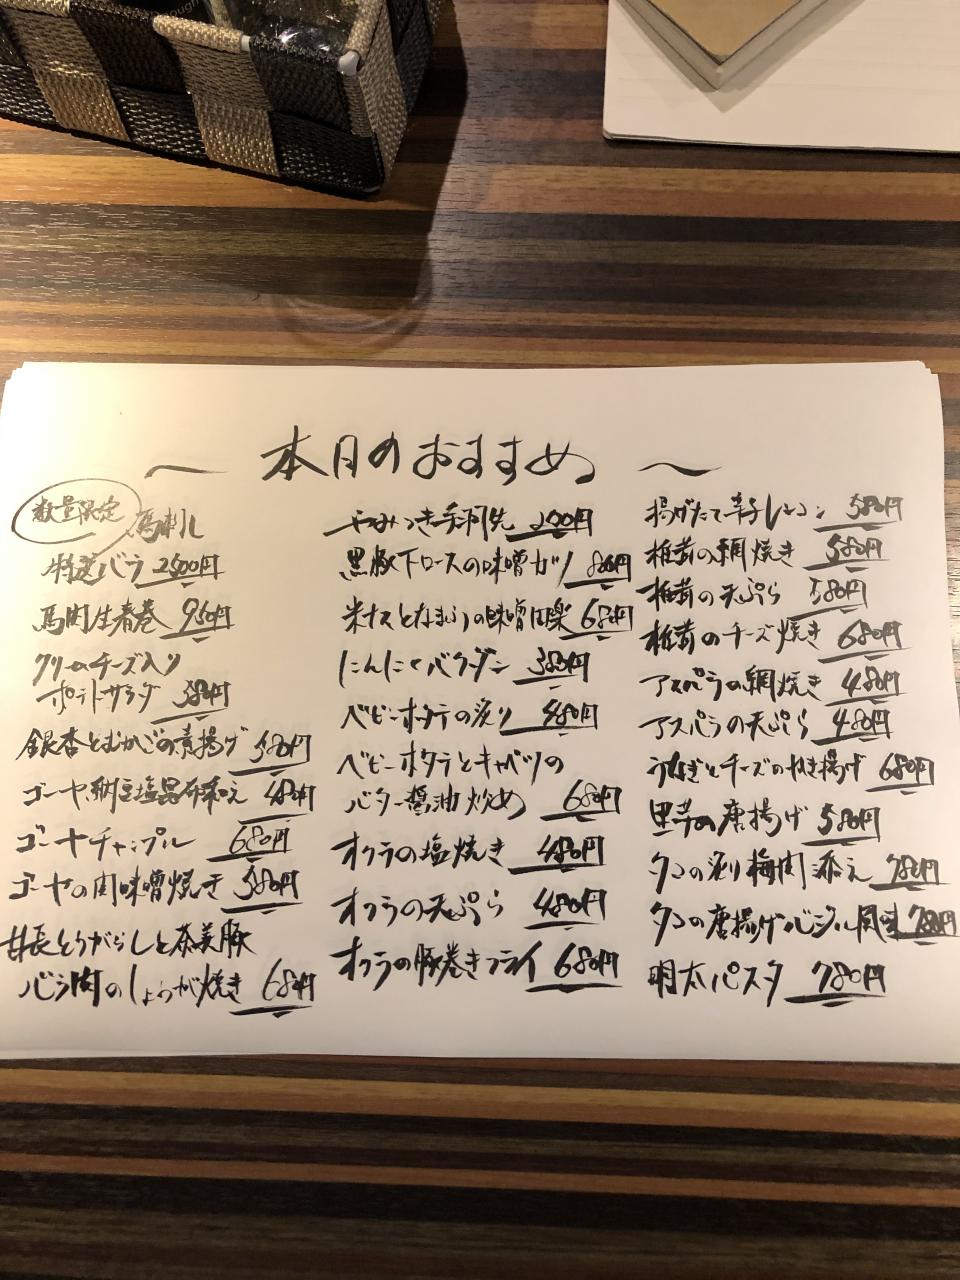 〜 本日のおすすめ 〜
数量限定 馬刺し
特選バラ 2500円
馬肉生春巻 950円
クリームチーズ入り
ポテトサラダ 380円
銀杏とむかごの素揚げ 580円
ゴーヤ納豆塩昆布和え 480円
ゴーヤチャンプル 680円
ゴーヤの肉味噌焼き 580円
甘長とうがらしと茶美豚
バラ肉のしょうが焼き 680円
やみつき手羽先 200円
黒豚下ロースの味噌カツ 880円
米ナスとなまふの味噌田楽 680円
にんにくバクダン 380円
ベビーホタテの造り 480円
ベビーホタテとキャベツの
バター醤油炒め 680円
オクラの塩焼き 480円
オクラの天ぷら 480円
オクラの豚巻きフライ 680円
揚げたて辛子レンコン 580円
椎茸の網焼き 580円
椎茸の天ぷら 580円
椎茸のチーズ焼き 680円
アスパラの網焼き 480円
アスパラの天ぷら 480円
うなぎとチーズの 揚げ 680円
里芋の唐揚げ 580円
タコの造り梅肉添え 780円
タコの唐揚げバジル風味 780円
明太パスタ 780円